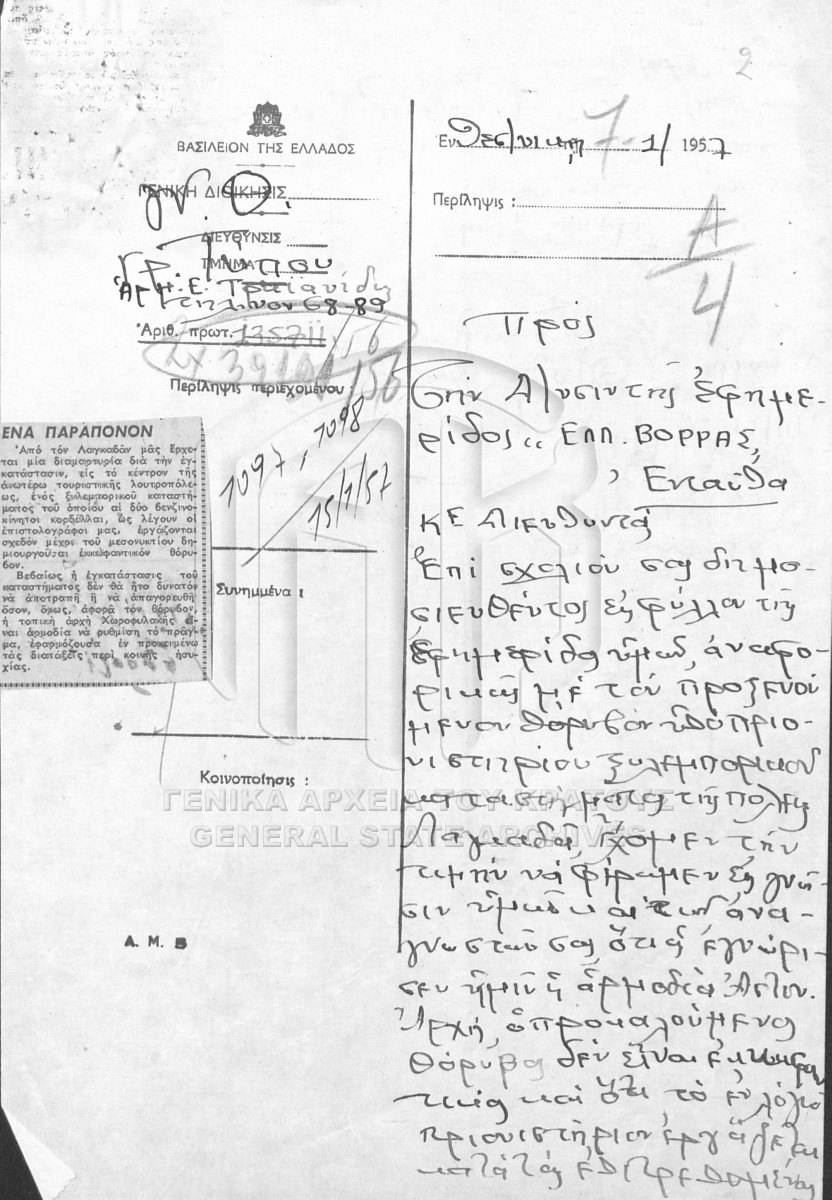 2
ΒΑΣΙΛΕΙΟΝ ΤΗΣ ΕΛΛΑΔΟΣ
ΓΕΝΙΚΗ ΔΙΟΙΚΗΣΙΣ
ΔΙΕΥΘΥΝΣΙΣ
Γρ. Τύπου
ΤΜΗΜΑ
68-89
Ἀριθ. πρωτ. 135711/56
Περίληψις περιεχομένου :
1097, 1098
15/1/57
ΕΝΑ ΠΑΡΑΠΟΝΟΝ
Ἀπό τόν Λαγκαδᾶν μᾶς ἔρχε-
ται μία διαμαρτυρία διά τήν ἐγ-
κατάστασιν, εἰς τό κέντρον τῆς
ἀνωτέρω τουριστικῆς λουτροπόλε-
ως, ἑνός ξυλεμπορικοῦ καταστή-
ματος τοῦ ὁποίου αἱ δύο βενζινο-
κίνητοι κορδέλλαι, ὡς λέγουν οἱ
ἐπιστολογράφοι μας, ἐργάζονται
σχεδόν μέχρι τοῦ μεσονυκτίου δη-
μιουργοῦσαι ἐκκωφαντικόν θόρυ-
βον.
Βεβαίως ἡ ἐγκατάστασις τοῦ
καταστήματος δέν θά ἦτο δυνατόν
νά ἀποτραπῇ ἤ νά ἀπαγορευθῇ
ὅσον, ὅμως, ἀφορᾷ τόν θόρυβον,
ἡ τοπική ἀρχή Χωροφυλακῆς εἶ-
ναι ἁρμοδία νά ρυθμίση τό πρᾶγ-
μα, ἐφαρμόζουσα ἐν προκειμένῳ
τάς διατάξεις περί κοινῆς ἡσυ-
χίας.
Συνημμένα :
Κοινοποίησις :
Α. Μ. 5
Ἐν Θεσ/νίκῃ 7-1/ 1957
Περίληψις :
Α/4
Πρός
Τήν Δ/νσιν τῆς ἐφημε-
ρίδος "ΕΛΛ. ΒΟΡΡΑΣ"
Ἐνταῦθα
Κε Διευθυντά
Ἐπί σχολίου σας δημο-
σιευθέντος εἰς φύλλον τῆς
ἐφημερίδος ὑμῶν, ἀναφο-
ρικῶς μέ τόν προξενού
μενον θόρυβον ὑπό πριο-
νιστηρίου ξυλεμπορικοῦ
καταστήματος τῆς πόλεως
Λαγκαδᾶ, ἔχομεν τήν
τιμήν νά φέρωμεν εἰς γνῶ-
σιν ὑμῶν καί τῶν ἀνα-
γνωστῶν σας ὅτι ὡς ἐγνώρι-
σεν ἡμῖν ἡ ἁρμοδία Ἀστυν.
Ἀρχή, ὁ προκαλούμενος
θόρυβος δέν εἶναι ἐκκωφαν
τικός καί ὅτι τό ἐν λόγῳ
πριονιστήριον ἐργάζεται
κατά τάς ἐπιτρεπομένας
ΓΕΝΙΚΑ ΑΡΧΕΙΑ ΤΟΥ ΚΡΑΤΟΥΣ
GENERAL STATE ARCHIVES